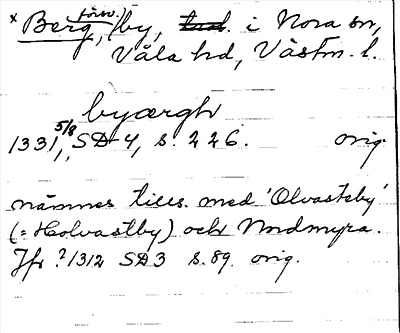 × Berg, (förr.) by, i Nora sn,
Våla hd, Västm. l.
byærgh
1331 5/8, SD 4, s. 226. orig.
nämnes tills. med 'Olvastaby'
(= Holvastby) och Nordmyra.
Jfr ? 1312 SD 3 s. 89. orig.